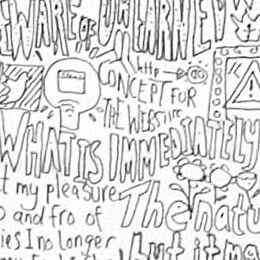 BEWARE OF UNEARNED
http
CONCEPT FOR
THE WEBSITE
WHAT IS IMMEDIATELY
t my pleasure
o and fro of
ies I no longer
The natu
but it ma